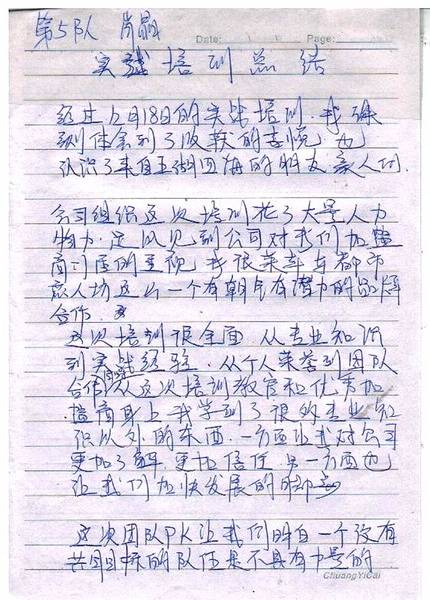 第5队 肖晶
Date: Page:
实战培训总结
经过12月18日的实战培训.我深
刻体会到了收获的喜悦.也
认识了来自五湖四海的朋友家人们.
公司组织这次培训花了大量人力
物力.足以见到公司对我们加盟
商门店的重视 我很荣幸与都市
丽人坊这么一个有朝气有潜力的品牌
合作.
这次培训很全面 从专业知识
到实战经验.从个人荣誉到团队
合作 从这次培训教官和优秀加
盟商身上我学到了很多专业知
识以外的东西.一方面让我对公司
更加了解 更加信任 另一方面也
让我们加快发展的脚步
这次团队PK让我们明白一个没有
共同目标的队伍是不具有力量的
ChuangYiCai